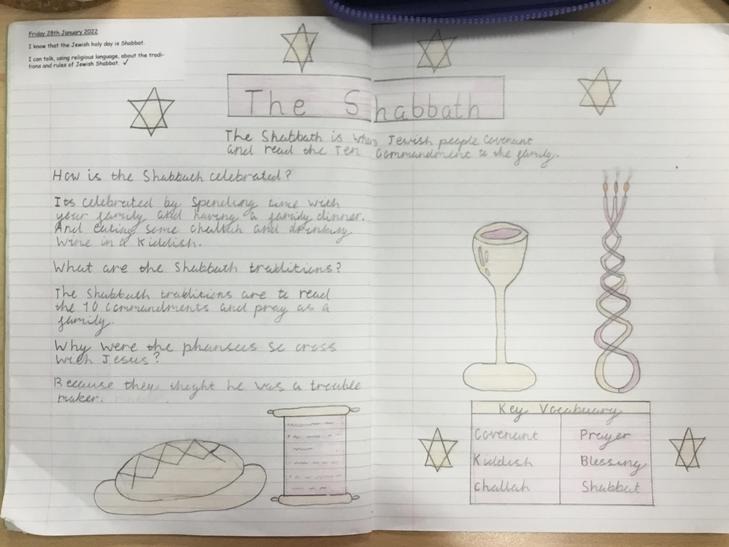 Friday 28th January 2022
I know that the Jewish holy day is Shabbat.
I can talk, using religious language, about the tradi-
tions and rules of Jewish Shabbat. ✓
The Shabbath
The Shabbath is when Jewish people covenant
and read the Ten commandment to the family.
How is the Shabbath celebrated?
Its celebrated by spending time with
your family and having a family dinner.
And eating some challah and drinking
wine in a Kiddish.
What are the Shabbath traditions?
The Shabbath traditions are to read
the 10 commandments and pray as a
family.
Why were the pharisees so cross
with Jesus?
Because they thught he was a trouble
maker.
Key Vocabuary
Covenant Prayer
Kiddish Blessing
challah Shabbat